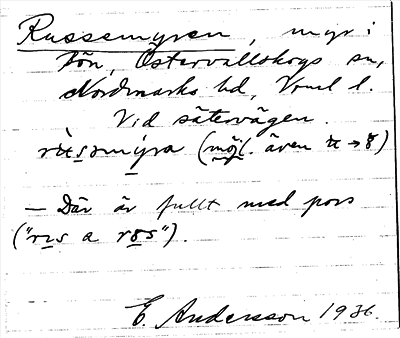 Russemyren, myr i
Bön, Östervallskogs sn,
Nordmarks hd, Vrml l.
Vid sätervägen.
rùsəmýra (möjl. även u → ȣ)
— Där är fullt med pors
("rɪs a rȣs").
E. Andersson 1936.